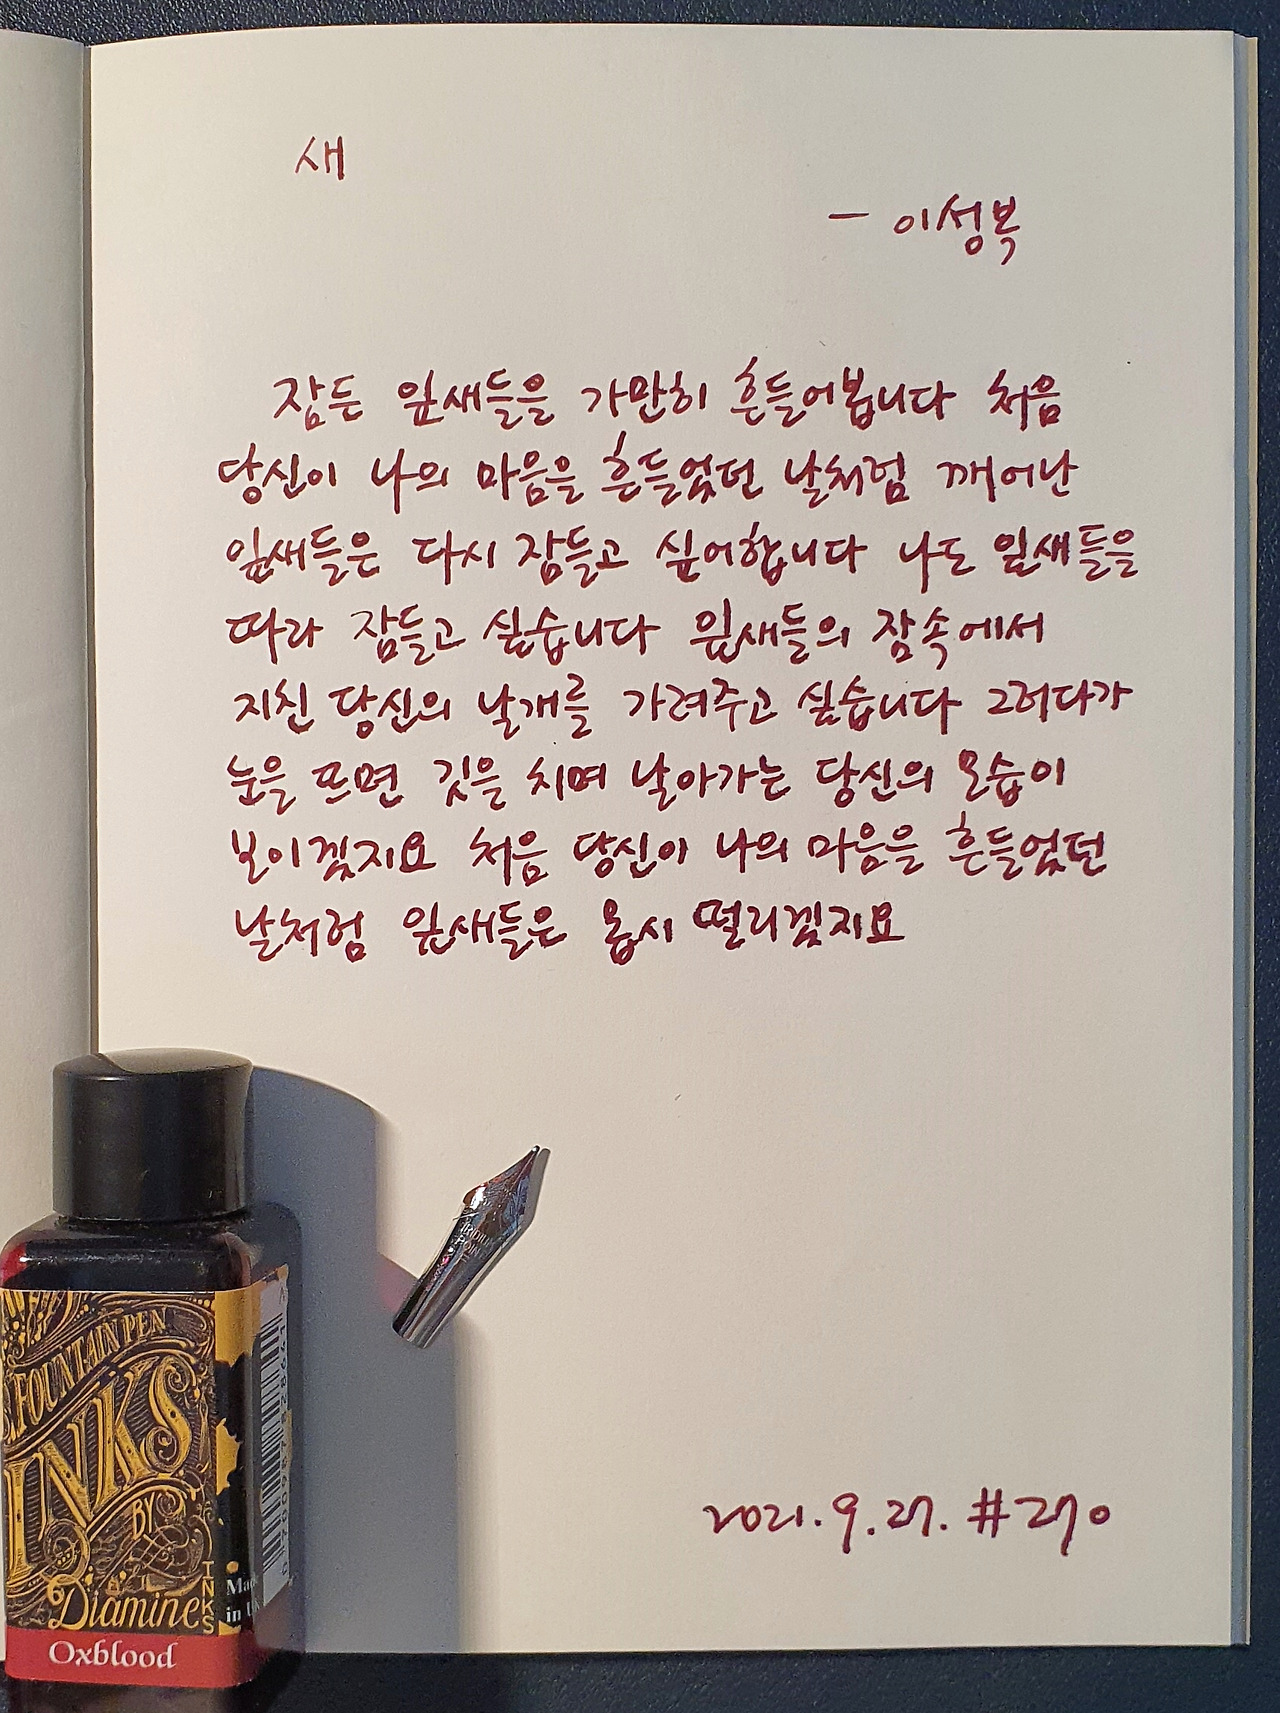 새
— 이성복
잠든 잎새들을 가만히 흔들어봅니다 처음
당신이 나의 마음을 흔들었던 날처럼 깨어난
잎새들은 다시 잠들고 싶어합니다 나도 잎새들을
따라 잠들고 싶습니다 잎새들의 잠속에서
지친 당신의 날개를 가려주고 싶습니다 그러다가
눈을 뜨면 깃을 치며 날아가는 당신의 모습이
보이겠지요 처음 당신이 나의 마음을 흔들었던
날처럼 잎새들은 몹시 떨리겠지요
IRIDIUM
POINT
FOUNTAIN PEN
INKS
BY
Diamine
INKS
Made
in UK
Oxblood
2021.9.27. #270